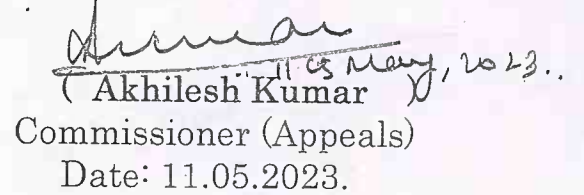 11th May, 2023.
( Akhilesh Kumar )
Commissioner (Appeals)
Date: 11.05.2023.